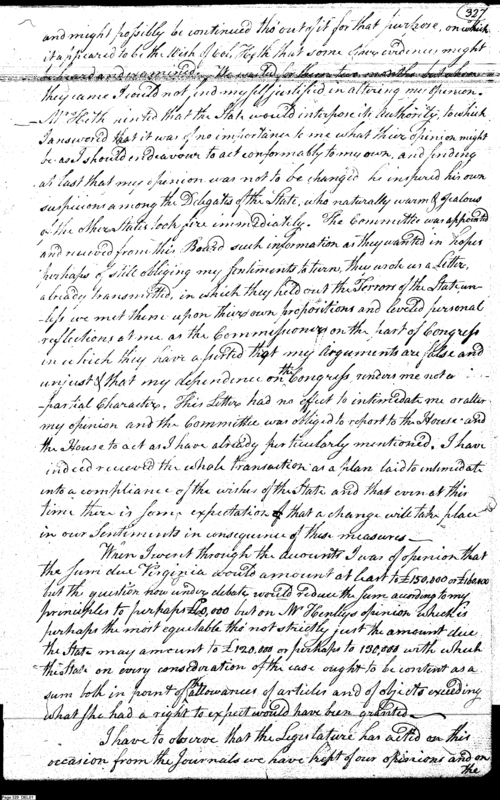 327
and might possibly be continued tho' out of it for that purpose, on which
it appeared to be the Wish of Col. Heth that some evidences might
be heard and He waited for them two months but when
they came I could not find myself justified in altering my opinion.
Mr Heth hinted that the State would interpose its Authority, to which
I answered that it was of no importance to me what their opinion might
be as I should endeavour to act conformably to my own, and finding
at last that my opinion was not to be changed he inspired his own
suspicions among the Delegates of the State, who naturally warm & jealous
of the other States took fire immediately. The Committee was appointed
and received from this Board such information as they wanted in hopes
perhaps of still obliging my Sentiments to turn, they wrote us a Letter,
already transmitted, in which they held out the Terrors of the State un-
-less we met them upon their own propositions and leveled personal
reflections at me as the Commissioner on the part of Congress
in which they have asserted that my Arguments are false and
unjust & that my dependence on the Congress, renders me not a
-partial Character. This Letter had no effect to intimidate me or alter
my opinion and the Committee was obliged to report to the House and
the House to act as I have already particularly mentioned. I have
indeed received the whole transaction as a plan laid to intimidate
into a compliance of the wishes of the State and that even at this
time there is some expectation of that a change will take place
in our Sentiments in consequence of these measures—
When I went through the accounts I was of opinion that
the Sum due Virginia would amount at least to £150,000 or £160,000
but the question now under debate would reduce the sum according to my
principles to perhaps £60,000 but on Mr Henlys opinion which is
perhaps the most equitable tho' not strictly just the amount due
the State may amount to £120,000 or perhaps to 130,000 with which
the State on every consideration of the case ought to be content as a
sum both in point of the allowances of articles and of objects exceeding
what she had a right to expect would have been granted—
I have to observe that the Legislature has acted on this
occasion from the Journals we have kept of our opinions and on
the